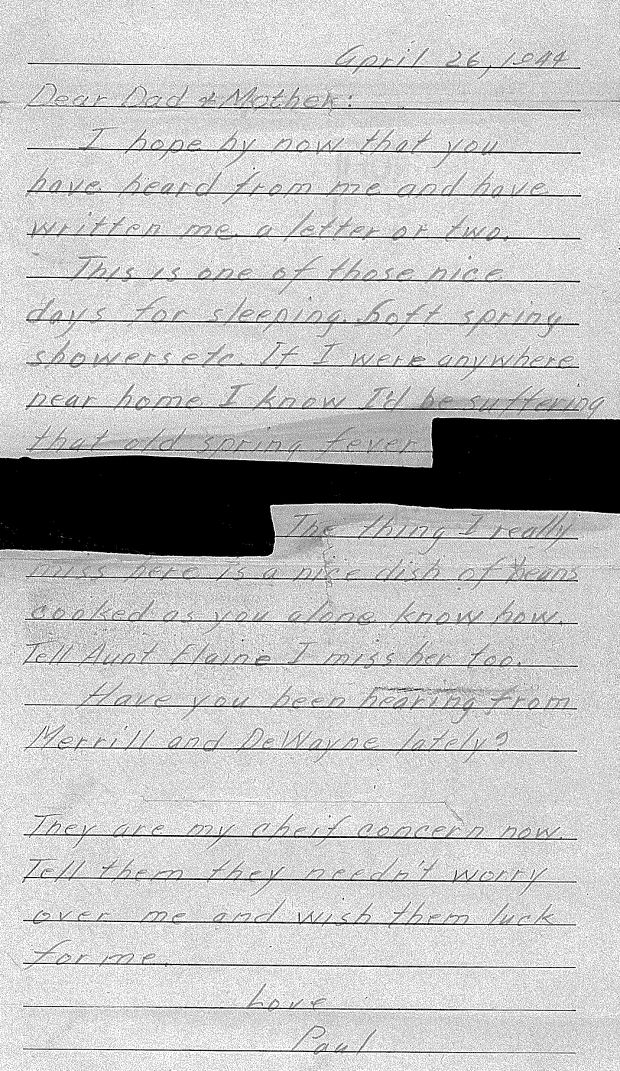 April 26, 1944
Dear Dad & Mother:
I hope by now that you
have heard from me and have
written me a letter or two.
This is one of those nice
days for sleeping. Soft spring
showers etc. If I were anywhere
near home I know I'd be suffering
that old spring fever
The thing I really
miss here is a nice dish of beans
cooked as you alone know how.
Tell Aunt Elaine I miss her too.
Have you been hearing from
Merrill and DeWayne lately?
They are my cheif concern now.
Tell them they needn't worry
over me and wish them luck
for me.
Love
Paul